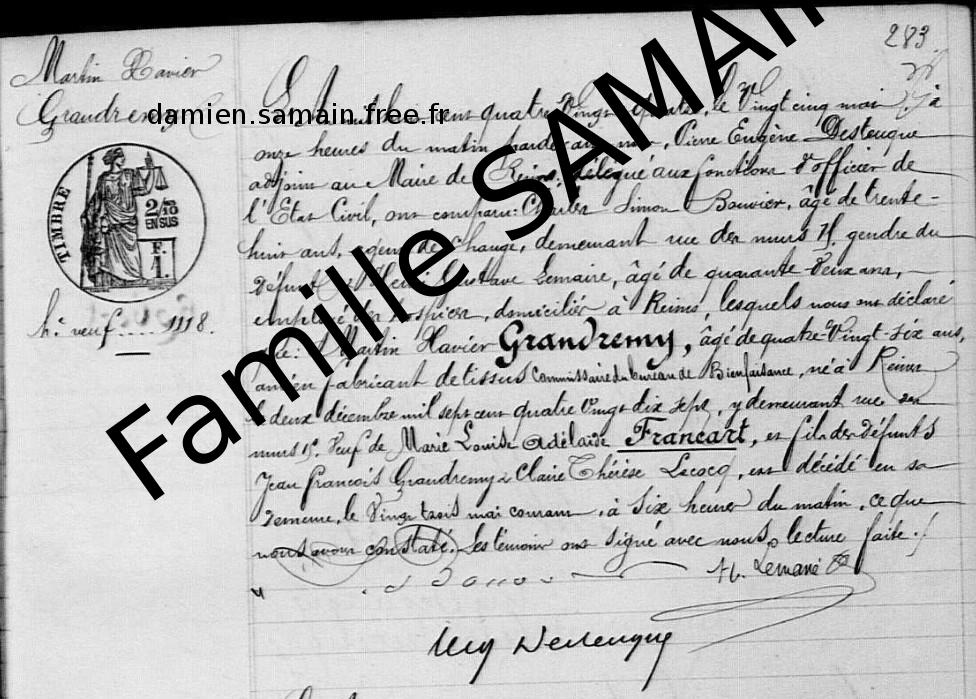 283.
Martin Xavier
Grandremy
damien.samain.free.fr
Famille SAMAIN
TIMBRE
2/10
EN SUS
F.
1.
hc neuf... 1118.
L'An mil huit cent quatre vingt quatre, le Vingt cinq mai, à
onze heures du matin, pardevant nous, Pierre Eugène Desteuque
adjoint au Maire de Reims, délégué aux fonctions d'officier de
l'Etat Civil, ont comparu: Charles Simon Bouvier, âgé de trente-
huit ans, agent de change, demeurant rue des murs 15, gendre du
défunt et Henri Gustave Lemaire, âgé de quarante deux ans,
employé des hospices, domiciliés à Reims, lesquels nous ont déclaré
que: Martin Xavier Grandremy, âgé de quatre-Vingt-six ans,
ancien fabricant de tissus Commissaire du bureau de Bienfaisance, né à Reims
le deux décembre mil sept cent quatre vingt dix sept, y demeurant rue des
murs 15, Veuf de Marie Louise Adélaïde Francart, et fils des défunts
Jean François Grandremy & Claire Thérèse Lecocq, est décédé en sa
demeure, le Vingt trois mai courant, à six heures du matin, ce que
nous avons constaté. Les témoins ont signé avec nous, lecture faite ./.
H. Lemaire
Desteuque